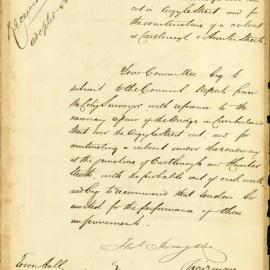 cut in Argyle Street and for
the construction of a culvert
at Castlereagh & Hunter Streets
Your Committee beg to
submit to the Council Reports from
the City Surveyor with reference to the
necessary repair of the Bridge in Cumberland
Street over the Argyle Street cut, and for
constructing a culvert under the roadway
at the junction of Castlereagh and Hunter
Streets, with the probable cost of each work
and beg to recommend that tenders be
invited for the performance of these
improvements.
Chairman
Town Hall